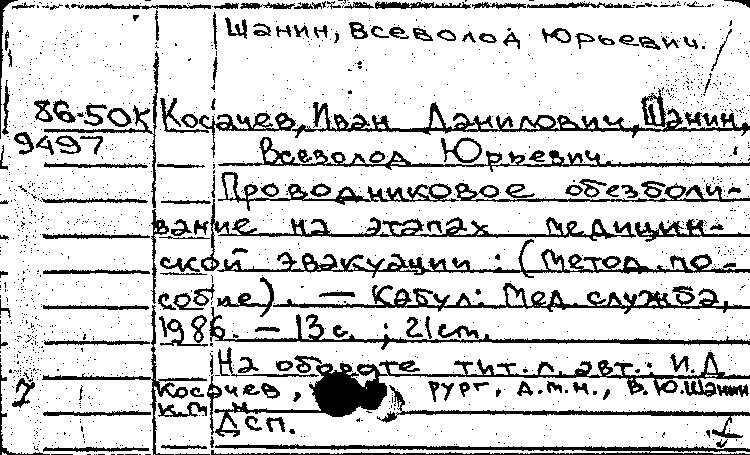 Шанин, Всеволод Юрьевич.
86-50К Косачев, Иван Данилович, Шанин,
9497 Всеволод Юрьевич.
Проводниковое обезболи-
вание на этапах медицин-
ской эвакуации : (Метод. по-
собие). — Кабул: Мед. служба,
1986. — 13 с. ; 21 см.
На обороте тит. л. авт.: И.Д.
Косачев, рург, д.м.н., В.Ю. Шанин
к.м.н.
ДСП.